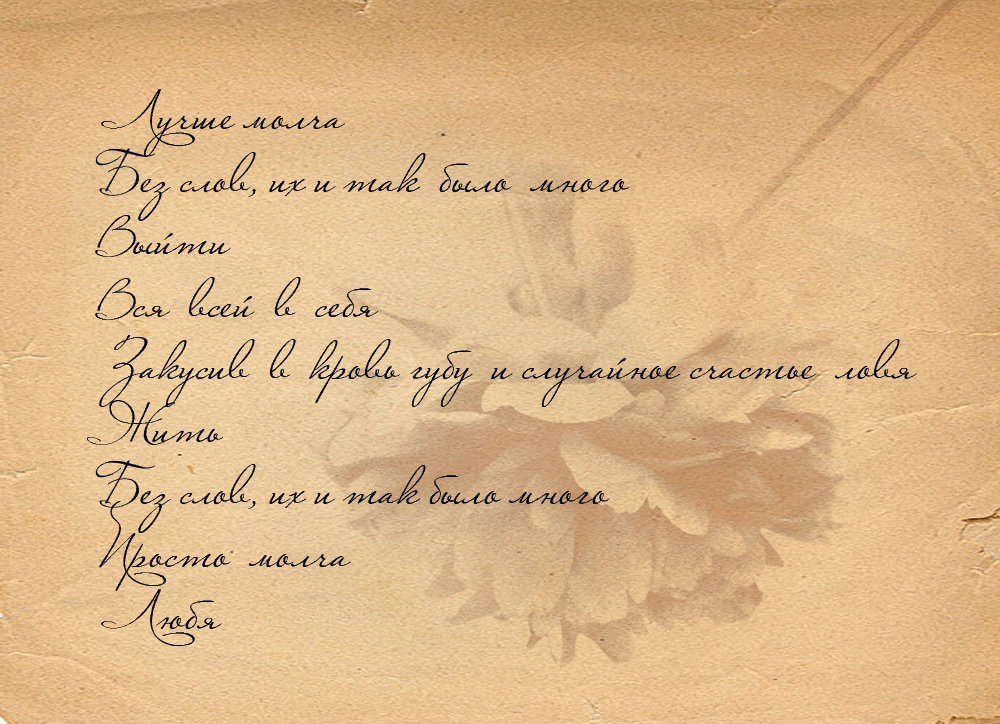 Лучше молча
Без слов, их и так было много
Выйти
Вся всей в себя
Закусив в кровь губу и случайное счастье ловя
Жить
Без слов, их и так было много
Просто молча
Любя